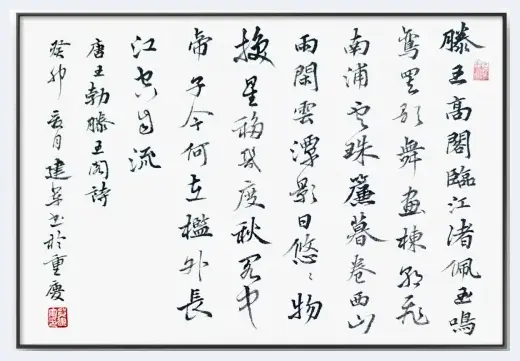 滕王高閣臨江渚佩玉鳴
鸞罷歌舞畫棟朝飛
南浦雲珠簾暮卷西山
雨閑雲潭影日悠〻物
換星移幾度秋閣中
帝子今何在檻外長
江空自流
唐王勃滕王閣詩
癸卯亥月建军书於重慶